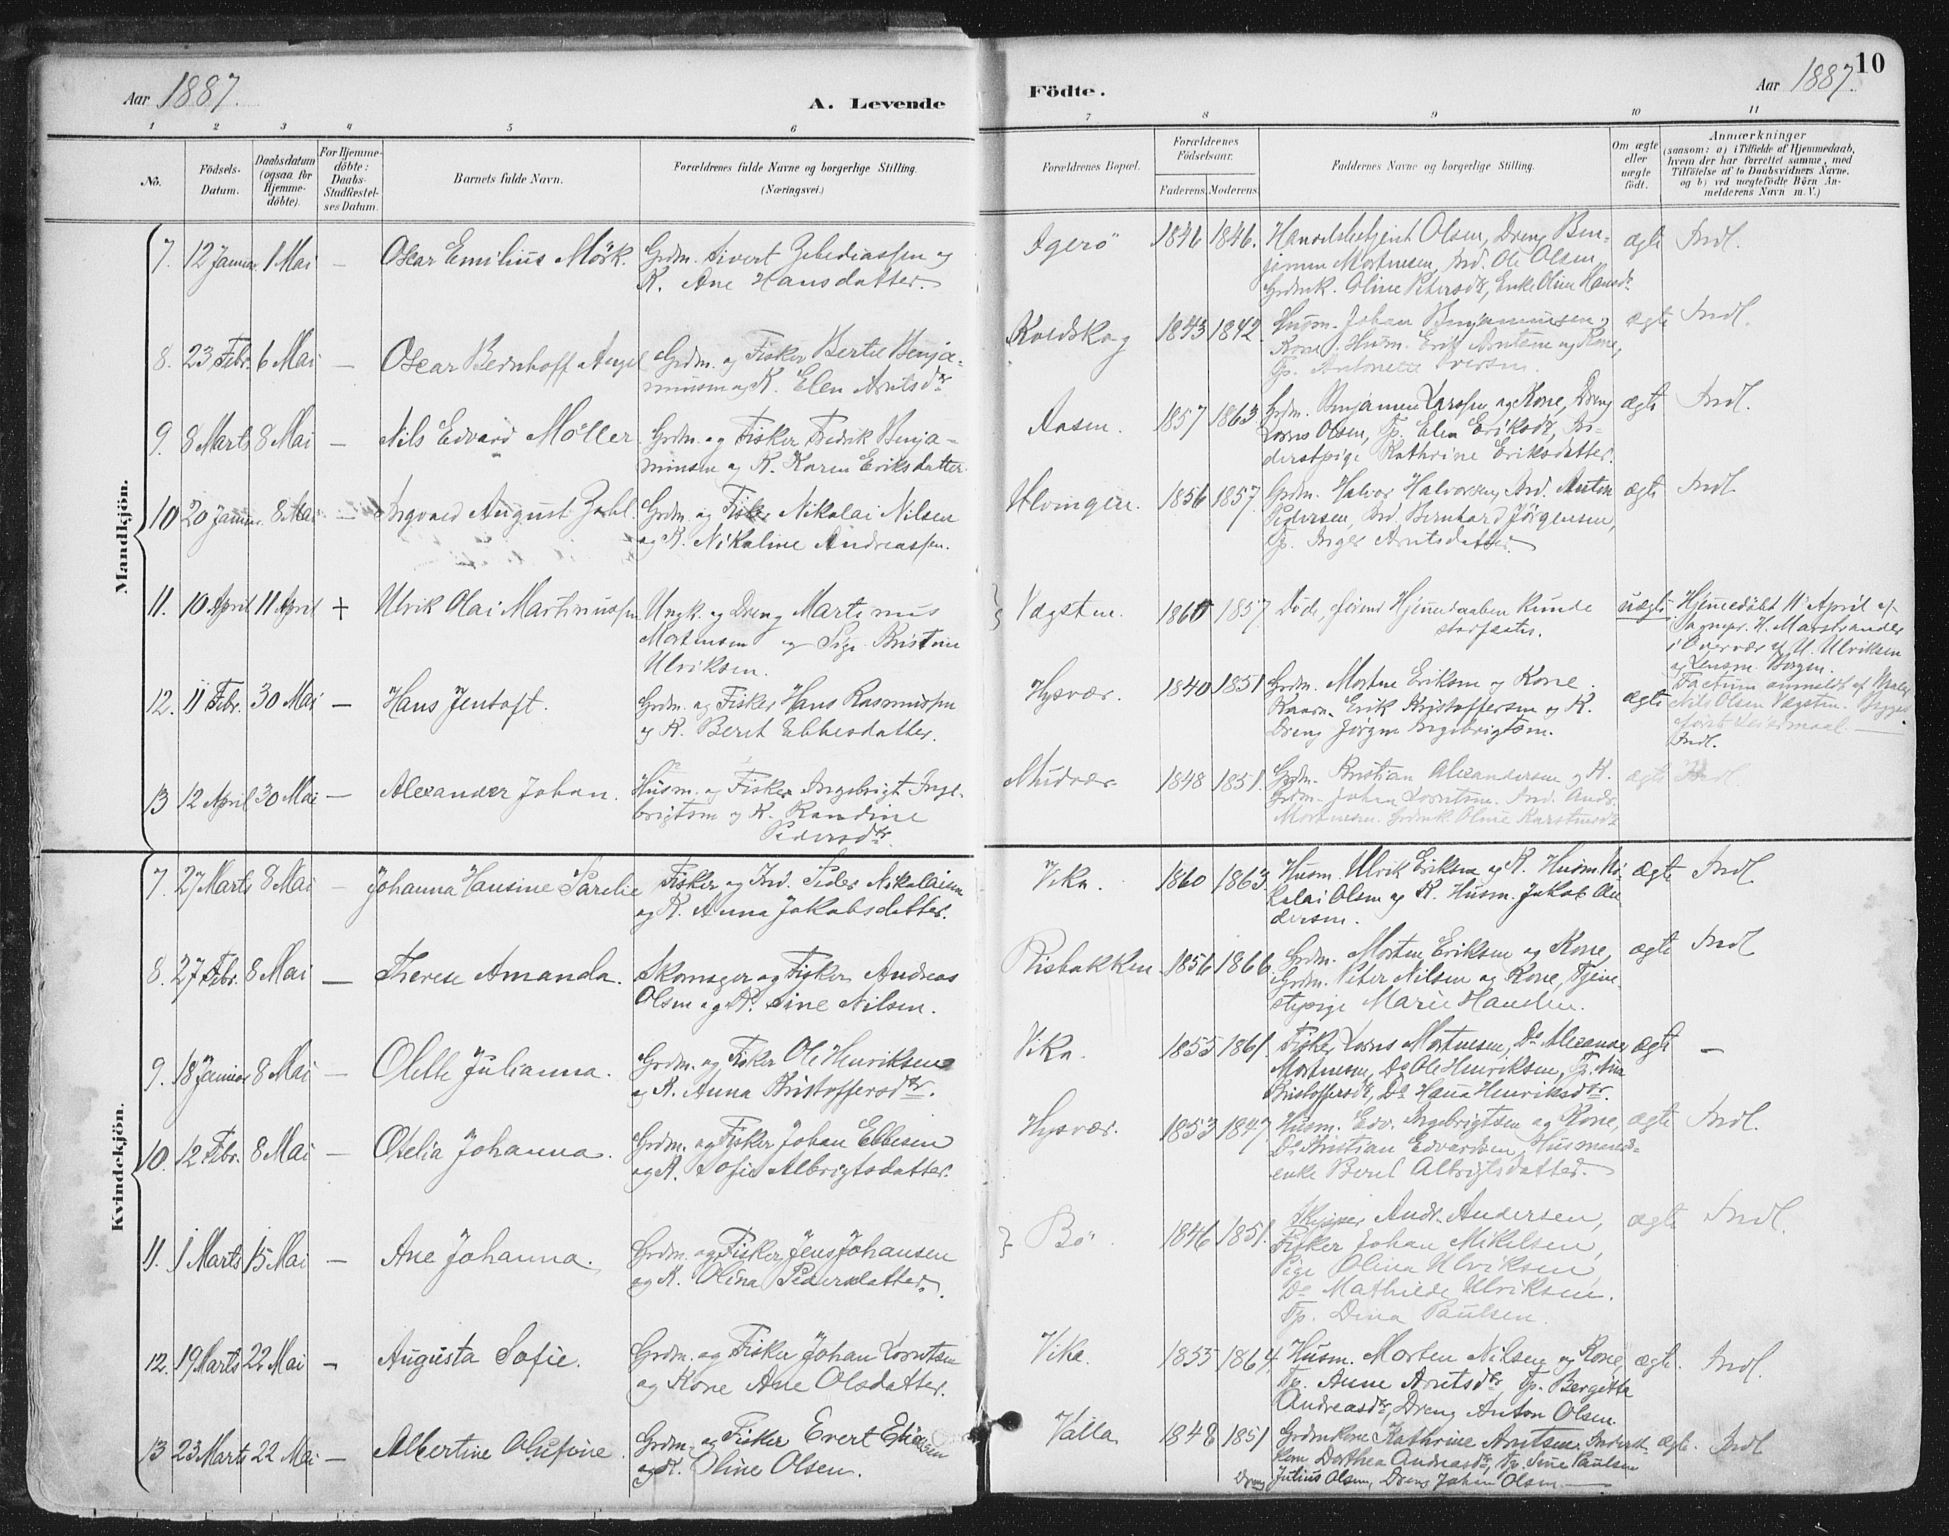 Aar 1887.
A. Levende
Födte.
Aar 1887.
10
1 2 3 4 5 6 7 8 9 10 11
No.
Födsels-Datum.
Daabsdatum (ogsaa for Hjemme-döbte).
For Hjemme-döbte: Daabs-Stadfæstel-ses Datum.
Barnets fulde Navn.
Forældrenes fulde Navne og borgerlige Stilling. (Næringsvei.)
Forældrenes Bopæl.
Forældrenes Födselsaar.
Faderens. Moderens.
Faddernes Navne og borgerlige Stilling.
Om ægte eller uægte födt.
Anmærkninger
(saasom: a) i Tilfælde af Hjemmedaab, hvem der har forrettet samme, med Tilföielse af to Daabsvidners Navne, og b) ved uægtefödte Börn An-melderens Navn m. V.)
Mandkjön.
7. 12 Januar 1 Mai — Oscar Emilius Mörk. Grdm. Sivert Zebediassen og
K. Ane Hansdatter.
Agerö 1846 1846. Handelsbetjent Olsen, Dreng Ben-
jamin Mortensen, Ind. Ole Olsen,
Grdmk. Oline Petersdr, Enke Oline Hansdr.
ægte Indl.
8. 23 Febr. 6 Mai — Oscar Bernhoff Angel Grdm. og Fisker Bertil Benja-
minsen og K. Elen Arntsdr
1843 1842. Husm. Johan Benjaminsen og
Kone, Husm. Erik Arntsen og Kone,
Tp. Antonette Iversen.
ægte Indl.
9. 8 Marts 8 Mai — Nils Edvard Möller Grdm. og Fisker Fredrik Benja-
minsen og K. Karen Eriksdatter.
Aasen. 1857 1863 Grdm. Benjamin Larssen og Kone, Dreng
Lorns Olsen, Tp. Elen Eriksdr, In-
derstpige Kathrine Eriksdatter.
ægte Indl.
10 20 Januar. 8 Mai — Ingvald August Zahl. Grdm. og Fisker Nikolai Nilsen
og K. Nikoline Andreassen.
Ulvingen. 1856 1857. Grdm. Halvor Halvorsen, Ind. Anton
Pedersen, Ind. Bernhard Jörgensen,
Tp. Inger Arntsdatter.
ægte Indl
11. 10 April 11 April + Ulrik Olai Martinussen Ungk. og Dreng Martinus
Mortensen og Pige Kristine
Ulriksen.
Vægsten. 1860 1857 Død, førend Hjemmedaaben kunde
stadfæstes.
uægte Hjemmedöbt 11 April af
Sognepr. H. Marstrander
i Overvær af U. Ulriksen
og Lensm. Borgen.
Factum anmeldt af
Nils Olsen Vægsten.
12. 11 Febr. 30 Mai — Hans Jentoft. Grdm. og Fisker Hans Rasmussen
og K. Berit Ebbesdatter.
Hysvær. 1840 1851 Grdm. Morten Eriksen og Kone.
Erik Kristoffersen og K.
Dreng Jörgen Ingebrigtsen.
ægte Indl.
13 12 April 30 Mai — Alexander Johan. Husm. og Fisker Ingebrigt Inge-
brigtsen og K. Randine
Pedersdr.
Mudvær 1848 1851. Grdm. Kristian Alexandersen og K.
Grdm. Johan Lorntsen. Ind. Andr.
Mortensen. Grdmk. Oline Karstensdr
ægte Indl
Kvindekjön.
7. 27 Marts 8 Mai — Johanna Hansine Parelie Fisker og Ind. Peder Nikolaisen
og K. Anna Jakobsdatter.
Vika. 1860 1863. Husm. Ulrik Eriksen og K. Husm. Ni-
kolai Olsen og K. Husm. Jakob An-
dersen.
ægte Indl
8. 27 Febr. 8 Mai — Therese Amanda. Skomager og Fisker Andreas
Olsen og K. Sine Nilsen.
Risbakken 1856 1866 Grdm. Morten Eriksen og Kone,
Grdm. Peter Nilsen og Kone, Tjene-
stepige Marie Hansen.
ægte Indl
9. 18 Januar 8 Mai — Olette Julianna. Grdm. og Fisker Ole Henriksen
og K. Anna Kristoffersdr.
Vika. 1855 1861. Fisker Lorns Mortensen, Do Alexander
Mortensen, Do Ole Henriksen, Tp. Ana
Kristoffersdr, Do Hana Henriksdr.
ægte —
10. 12 Febr. 8 Mai — Otelia Johanna. Grdm. og Fisker Johan Ebbesen
og K. Sofie Albrigtsdatter.
Hysvær. 1853 1847 Husm. Edv. Ingebrigtsen og Kone,
Do Kristian Edvardsen, Husmands-
enke Berit Albrigtsdatter.
ægte Indl.
11. 1 Marts 15 Mai — Ane Johanna. Grdm. og Fisker Jens Johansen
og K. Olina Pedersdatter.
Bö. 1846 1851. Skipper Andr. Andersen,
Fisker Johan Mikelsen,
Pige Olina Ulriksen,
Do Mathilde Ulriksen.
Tp. Dina Paulsen.
ægte Indl.
12. 19 Marts 22 Mai — Augusta Sofie. Grdm. og Fisker Johan Lorntsen
og Kone Ane Olsdatter.
Vika. 1855 1864. Husm. Morten Nilsen og Kone,
Tp. Anne Arntsdr, Tp. Bergitta
Andreasdr, Dreng Anton Olsen
ægte. Indl.
13 23 Marts 22 Mai — Albertine Olufine. Grdm. og Fisker Evert Eliassen
og K. Oline Olsen.
Valla 1848 1851 Grdmkone Kathrine Arntsen, Inderst-
kone Dorthea Andreasdr, Tp. Sine Paulsen
Dreng Julius Olsen, Dreng Johan Olsen
ægte. Indl